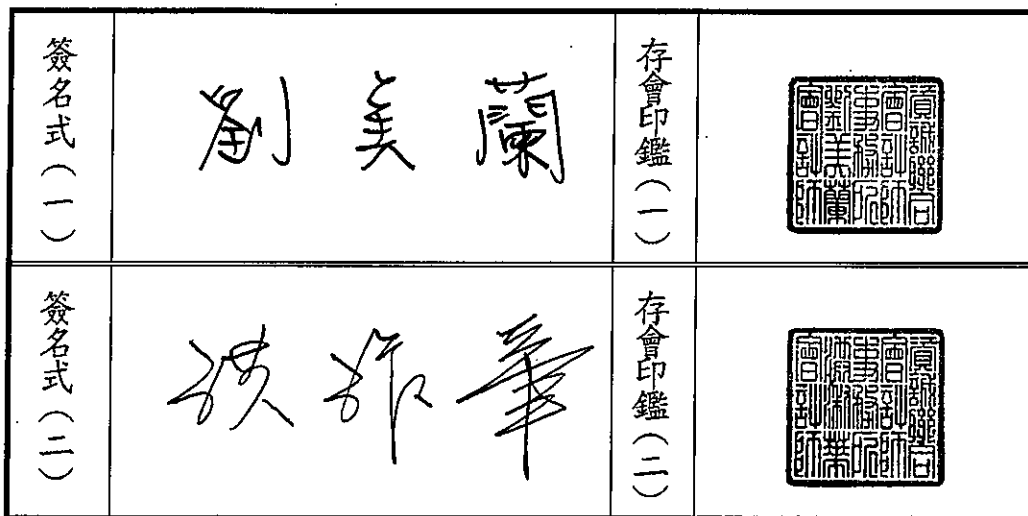 簽名式(一)
劉美蘭
存會印鑑(一)
資誠聯合
會計師
事務所
劉美蘭
會計師
簽名式(二)
洪淑華
存會印鑑(二)
資誠聯合
會計師
事務所
洪淑華
會計師